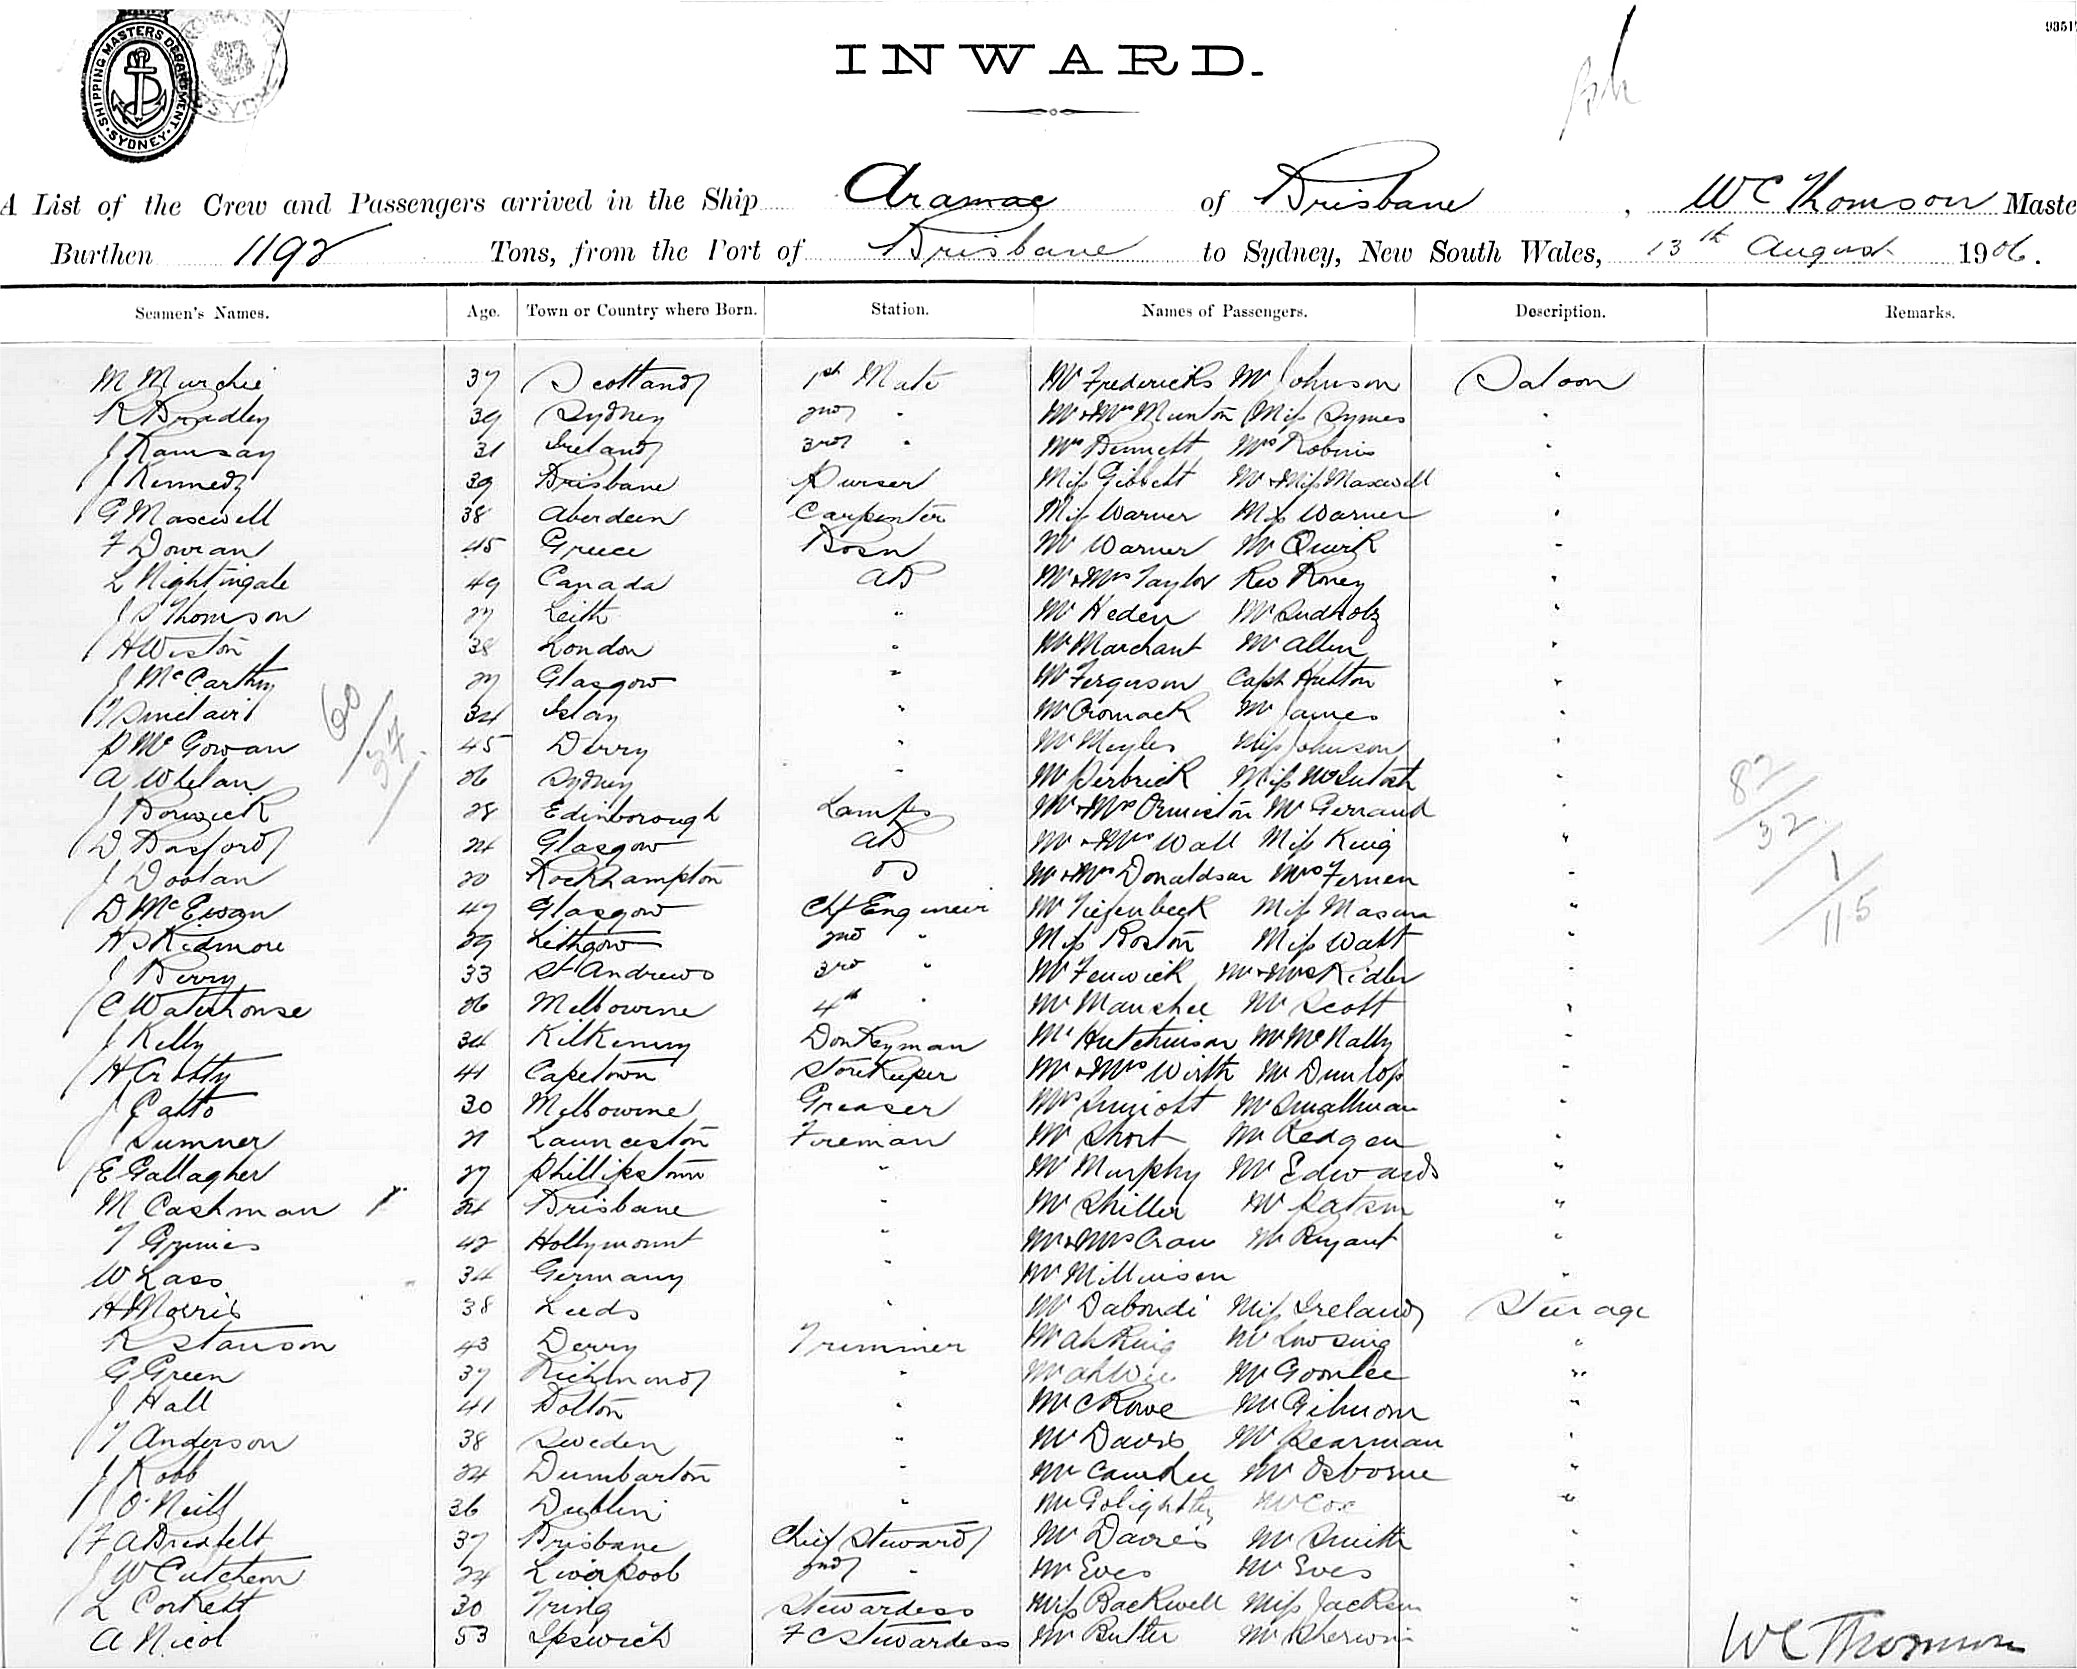 SHIPPING MASTERS DEPARTMENT
SYDNEY
INWARD.
A List of the Crew and Passengers arrived in the Ship Aramac of Brisbane, WC Thomson Maste
Burthen 1192 Tons, from the Port of Brisbane to Sydney, New South Wales, 13th August 1906.
Seamen's Names. Age. Town or Country where Born. Station. Names of Passengers. Description. Remarks.
M Murchie 37 Scotland 1st Mate Mr Fredericks Mr Johnson Saloon
R Bradley 39 Sydney 2nd " Mr & Mrs Munton Miss Symes "
J Ramsay 31 Ireland 3rd " Mrs Bennett Mrs Robins "
J Kennedy 39 Brisbane Purser Miss Gibbett Mr & Miss Maxwell "
G Maxwell 38 Aberdeen Carpenter Miss Warner Miss Warner "
F Dowran 45 Greece Bosn Mr Warner Mr Quirk "
L Nightingale 49 Canada AB Mr & Mrs Taylor Rev Roney "
J S Thomson 27 Leith " Mr Heden Mr Sudholz "
H Weston 38 London " Mr Marchant Mr Allen "
J McCarthy 27 Glasgow " Mr Ferguson Capt Hutton "
T Sinclair 34 Islay " Mr Cromack Mr James "
P McGowan 45 Derry " Mr Meyles Miss Johnson "
A Whelan 26 Sydney " Mr Perbrick Miss McIntosh "
J Borwick 28 Edinborough Lamps Mr & Mrs Ormiston Mr Gerrand "
D Basford 24 Glasgow AB Mr & Mrs Wall Miss King "
J Doolan 20 Rockhampton OS Mr & Mrs Donaldson Mrs Fernen "
D McEwan 47 Glasgow Chf Engineer Mr Tiefenbeck Miss Mason "
H Skidmore 29 Lithgow 2nd " Miss Boston Miss Watt "
J Berry 33 St Andrews 3rd " Mr Fenwick Mr & Mrs Kidler "
C Waterhouse 26 Melbourne 4th " Mr Manshee Mr Scott "
J Kelly 34 Kilkenny Donkeyman Mr Hutchinson Mr McNally "
H Crotty 41 Capetown Storekeeper Mr & Mrs Wirth Mr Dunlop "
J Catto 30 Melbourne Greaser Mrs Mr Smallman "
J Sumner 21 Launceston Fireman Mr Short Mr Redgen "
E Gallagher 27 Phillipstown " Mr Murphy Mr Edwards "
M Cashman 24 Brisbane " Mr Shiller Mr Watson "
T Grimes 42 Hollymount " Mr & Mrs Crow Mr Bryant "
W Lass 34 Germany " Mr Millinsen "
H Morris 38 Leeds " Mr Dabondi Miss Ireland Steerage
R Stanson 43 Derry Trimmer Mr Ah King Mr Low Sing "
G Green 37 Richmond " Mr Ah Wee Mr Goonlee "
J Hall 41 Bolton " Mr C Rowe Mr Gilmore "
T Anderson 38 Sweden " Mr Davis Mr Pearman "
J Robb 24 Dumbarton " Mr Camden Mr Osborne "
J O'Neill 36 Dublin " Mr Golightly Mr Cox "
F A 37 Brisbane Chief Steward Mr Davies Mr Smith "
J W Cutchem 24 Liverpool 2nd " Mr Eves Mr Eves "
L Corkett 30 Tring Stewardess Miss Backwell Miss Jackson "
A Nicol 53 Ipswich F C Stewardess Mr Butler Mr Sherwin "
60/34
82/32/1/115
WC Thomson